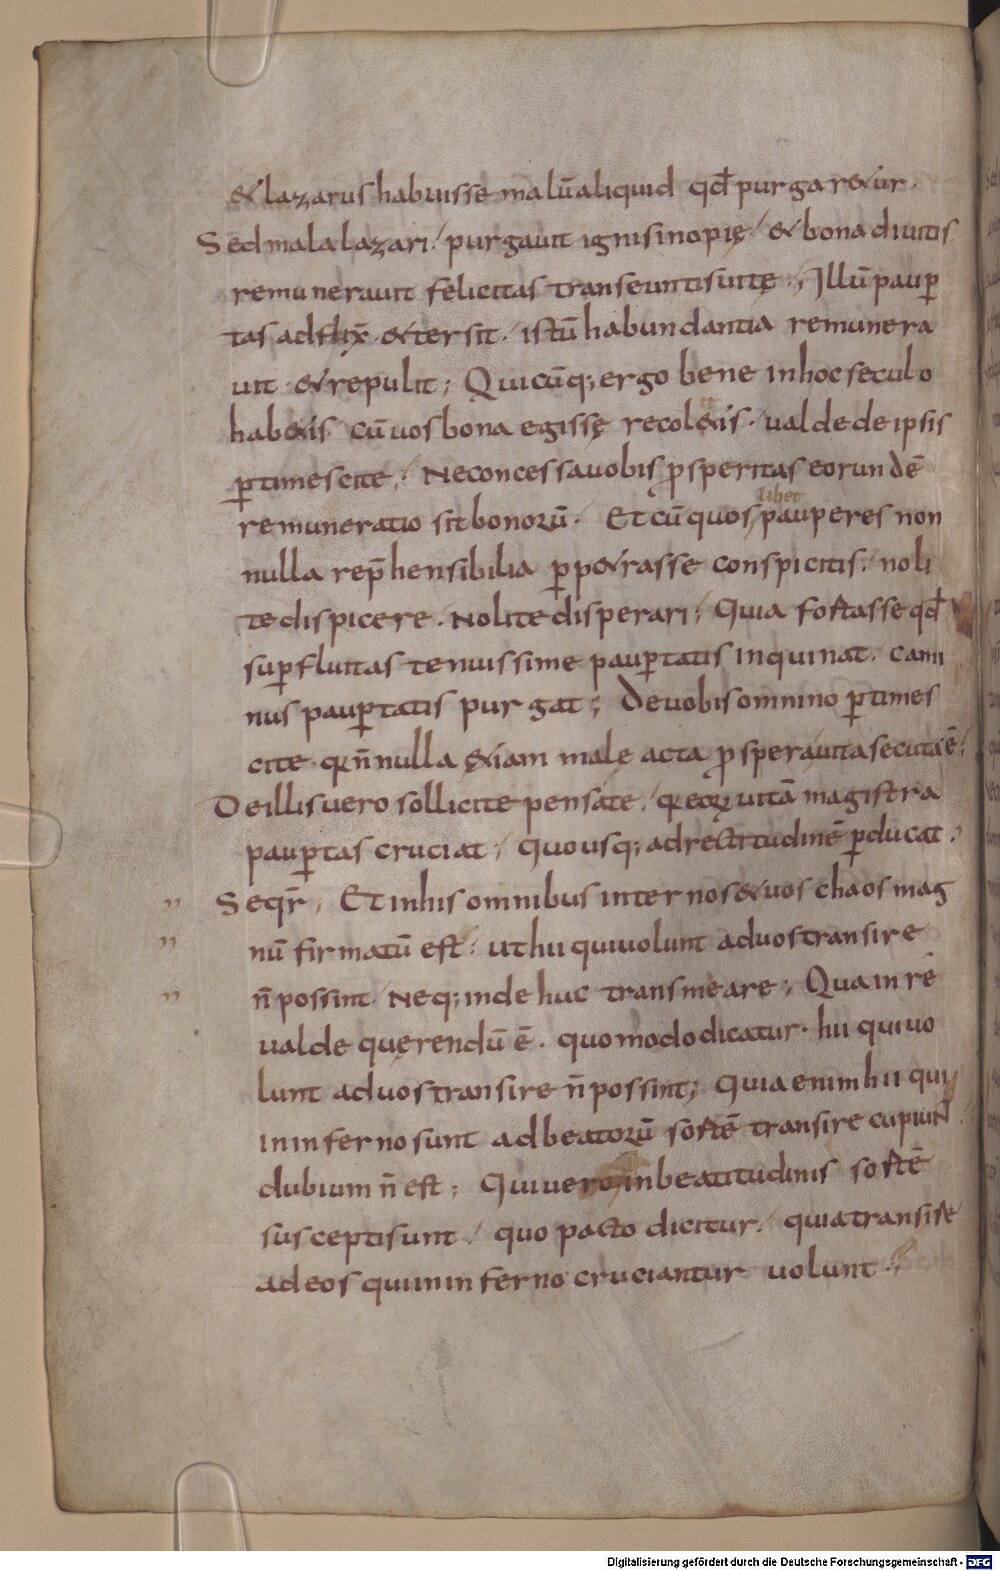 & lazarus habuisse malū aliquid qđ purgar&ur.
Sed mala lazari / purgauit ignis inopię / & bona diuitis
remunerauit felicitas transeuntis uitę; Illū pauꝑ
tas adflix̄ & tersit / istū habundantia remunera
uit & repulit; Quicūq; ergo bene in hoc seculo
hab&is cū uos bona egissę recol&is. ualde de ipsis
ꝑtimescite; Ne concessa uobis ꝓsperitas eorundē
remuneratio sit bonorū. Et cū quos libet pauperes non
nulla rep̄hensibilia ꝑp&rasse conspicitis / noli
te dispicere. Nolite disperari; Quia fortasse qđ
suꝑfluitas tenuissime pauꝑtatis inquinat. cami
nus pauꝑtatis purgat; De uobis omnino ꝑtimes
cite. qR n̄nulla &iam malę acta ꝓspera uita secuta ē;
De illis uero sollicite pensate / qR eoꝝ uitā magistra
pauꝑtas cruciat; Quousq; ad rectitudinē ꝑducat.
Seqr̄; Et in his omnibus inter nos & uos chaos mag
nū firmatū est; ut hii qui uolunt ad uos transire
n̄ possint / Neq; inde huc transmeare; Qua in rē
ualde quęrendū ē. quomodo dicatur. hii qui uo
lunt ad uos transire n̄ possint; Quia enim hii qui
in inferno sunt ad beatorū sortē transire cupiunt
dubium n̄ est; Qui uero in beatitudinis sortē
suscepti sunt / quo pacto dicitur / quia transire
ad eos qui in inferno cruciantur uolunt;
Digitalisierung gefördert durch die Deutsche Forschungsgemeinschaft - DFG